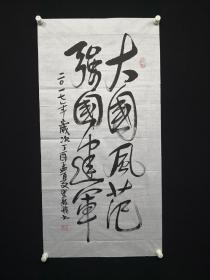 大國風范
强國建軍
二〇一七年歲次丁酉